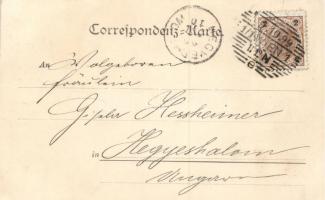 Correspondenz-Karte.
An Wolgeboren
Fräulein
Gisela Hessheimer
in Hegyeshalom
Ungarn